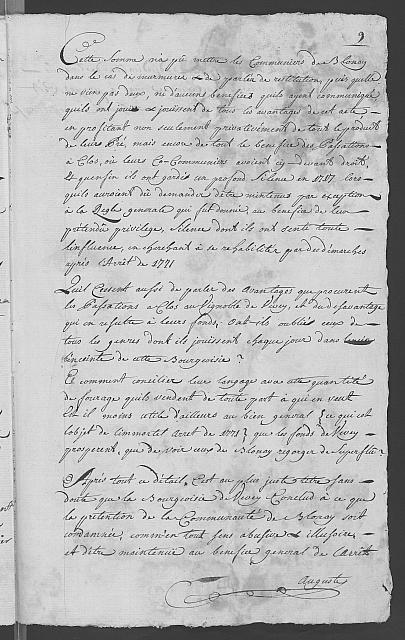 9
Cette Somme n'a pû mettre les Communiers de Blonay
dans le cas de murmurer & de parler de restitution, puis qu'elle
ne vient pas d'eux, ni d'aucuns benefices qu'ils ayent communiqué
qu'ils ont jouis & jouissent de tous les avantages de cet acte
en profitant non seulement privativement de tout le produit
de leurs Prés, mais encore de tout le benefice des Passations
à Clos, où leurs Co-Communiers avoient cy-devant droit,
Et qu'enfin ils ont gardés un profond Silence en 1717 lors-
qu'ils auroient dû demander d'être maintenus par exception
à la Regle generale qui fut donnée, au benefice de leur
prétendu privilege, Silence dont ils ont senti toute
l'influence, en cherchant à se rehabiliter par des démarches
après l'Arrêt de 1771
Qu'ils Cessent aussi de parler des Avantages que procurent
les Passations à Clos au Vignoble de Vevey, et du desavantage
qui en resulte à leurs fonds. Ont-ils oubliés ceux de
tous les genres dont ils jouissent chaque jour dans
l'enceinte de cette Bourgeoisie?
Et comment concilier leur langage avec cette quantité
de fourage qu'ils vendent de toute part à qui en veut
Est il moins utile d'ailleurs au bien general (ce qui est
l'objet de l'immortel Arrêt de 1771) que les fonds de Vevey
prosperent, que de voir ceux de Blonay regorger de Superflu?
Après tout ce détail, c'est au plus juste titre sans
doute que la Bourgeoisie de Vevey Conclud à ce que
la prétention de la Communauté de Blonay soit
condamnée, comme en tout sens abusive & illusoire,
et d'être maintenue au benefice general de l'Arrêt
Auguste